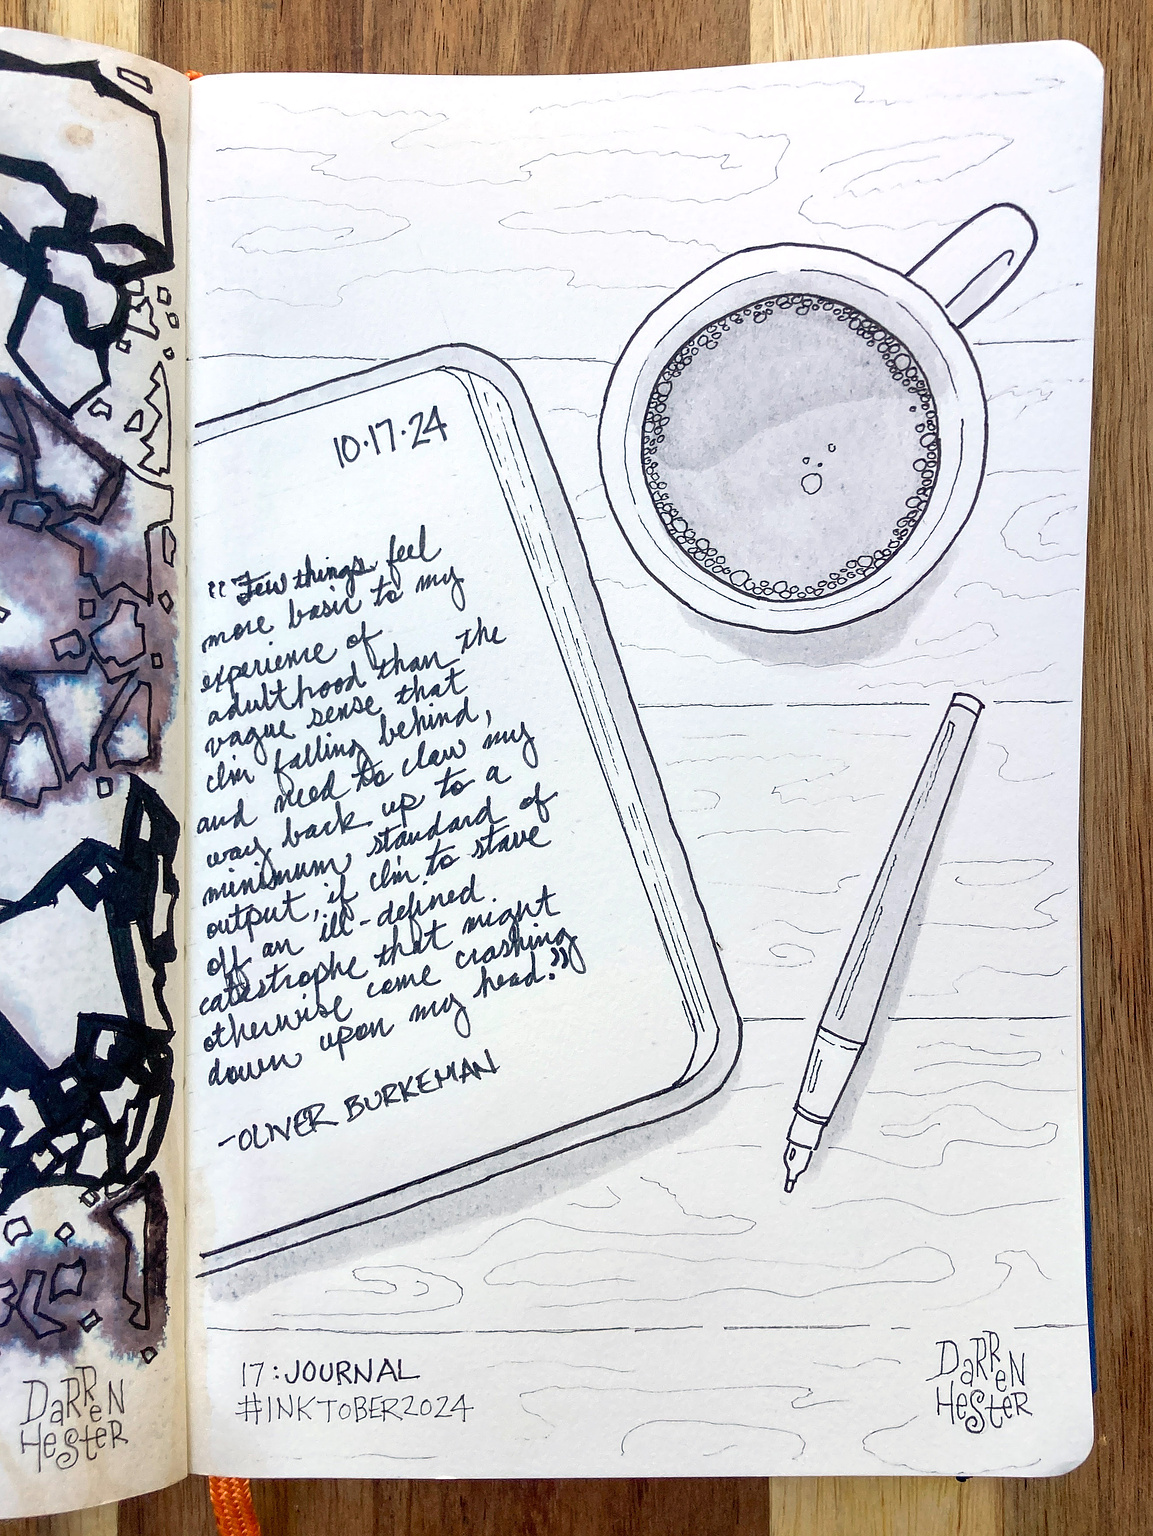 10·17·24
"Few things feel
more basic to my
experience of
adulthood than the
vague sense that
I'm falling behind,
and need to claw my
way back up to a
minimum standard of
output, if I'm to stave
off an ill-defined
catastrophe that might
otherwise come crashing
down upon my head."
-OLIVER BURKEMAN
17:JOURNAL
#INKTOBER2024
DARREN
HESTER
DARREN
HESTER